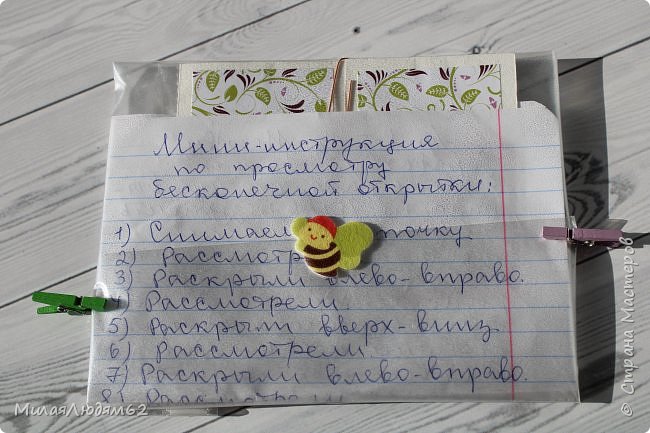 Мини-инструкция
по просмотру
бесконечной открытки:
1) Снимаем почку
2) Рассмотр
3) Раскрыли влево-вправо.
Рассмотрели
5) Раскрыли вверх-вниз
6) Рассмотрели
7) Раскрыли влево-вправо.
8) Рассмотрели
МилаяЛюдям62
© Страна Мастеров